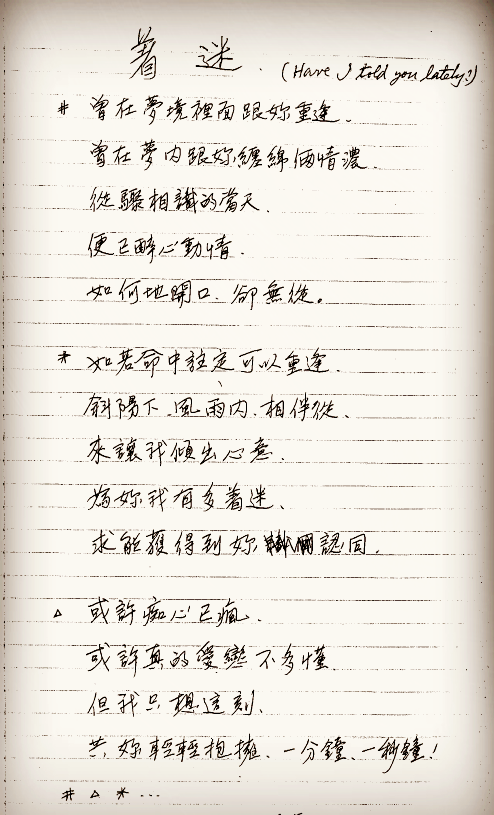 着迷. (Have I told you lately?)
# 曾在夢境裡面跟妳重逢.
曾在夢內跟妳纏綿個情濃.
從驟相識的當天.
便已醉心動情.
如何地開口. 卻無從。
* 如若命中註定可以重逢.
斜陽下、風雨內、相伴從、
來讓我傾出心意.
為妳我有多着迷、
求能獲得到妳 認同.
△ 或許痴心已瘋.
或許真的愛戀不多懂
但我只想這刻.
共妳輕輕抱擁、一分鐘、一秒鐘!
# △ * ...